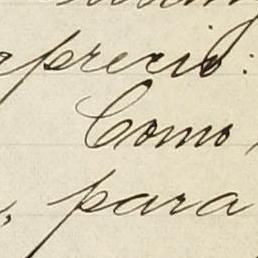 aprecio:
Como,
, para